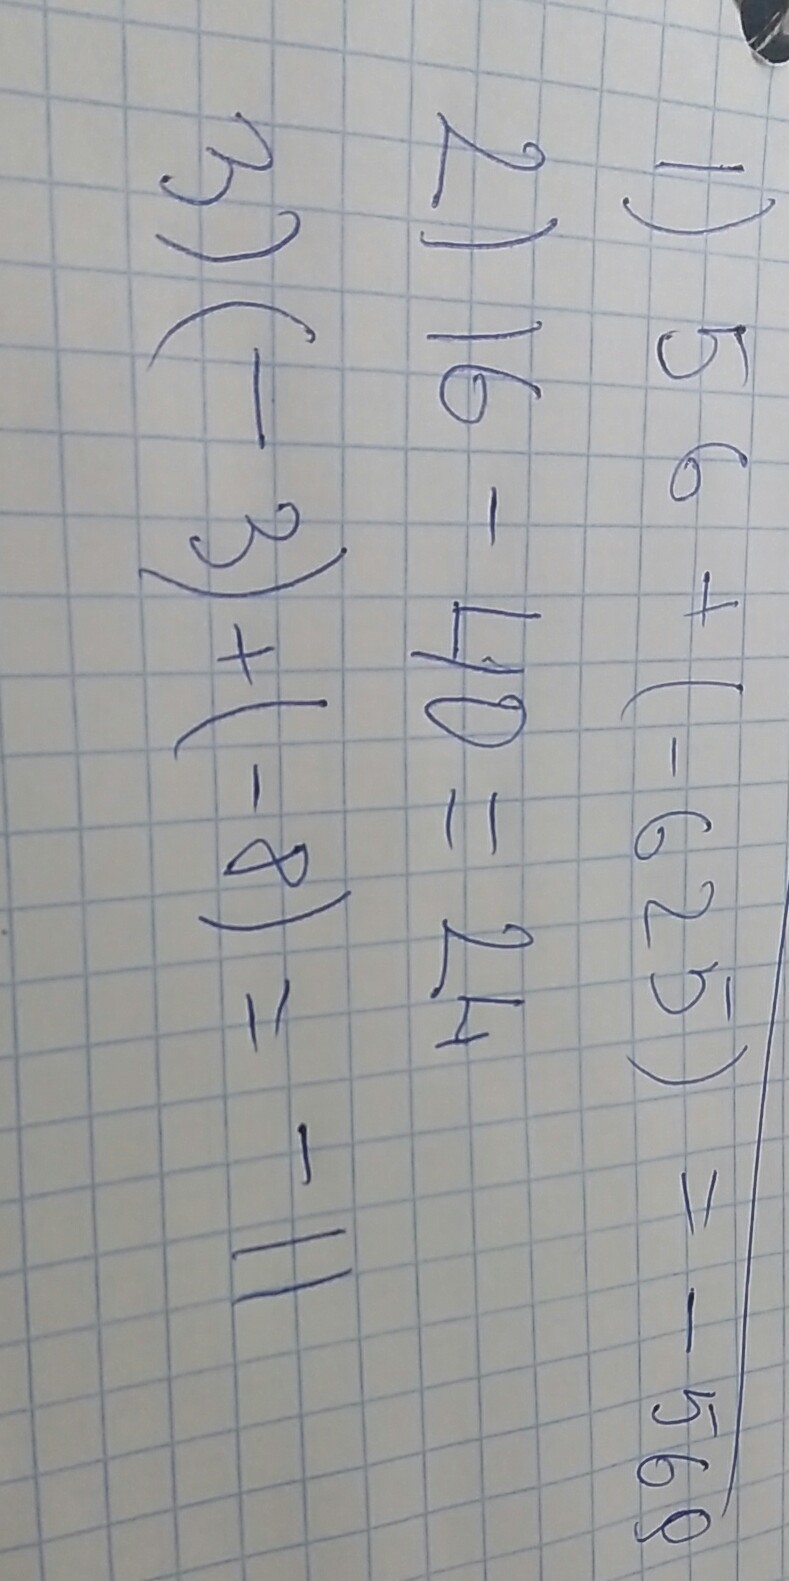 1) 56 + (-625) = -569
2) 16 - 40 = 24
3) (-3) + (-8) = -11